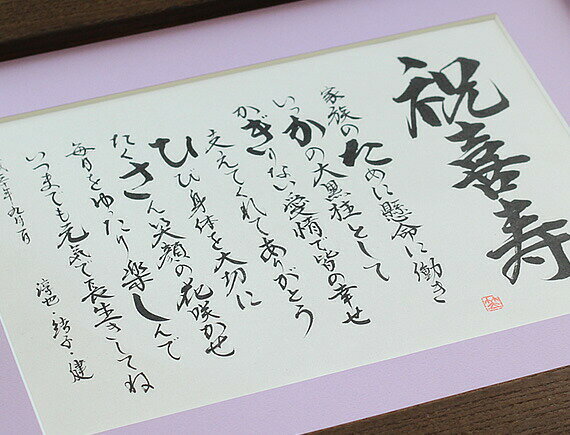 祝喜寿
家族のために懸命に働き
いっかの大黒柱として
かぎりない愛情で皆の幸せ
支えてくれてありがとう
ひび身体を大切に
たくさん笑顔の花咲かせ
毎日をゆったり楽しんで
いつまでも元気で長生きしてね
三十年九月
淳也・結子・健